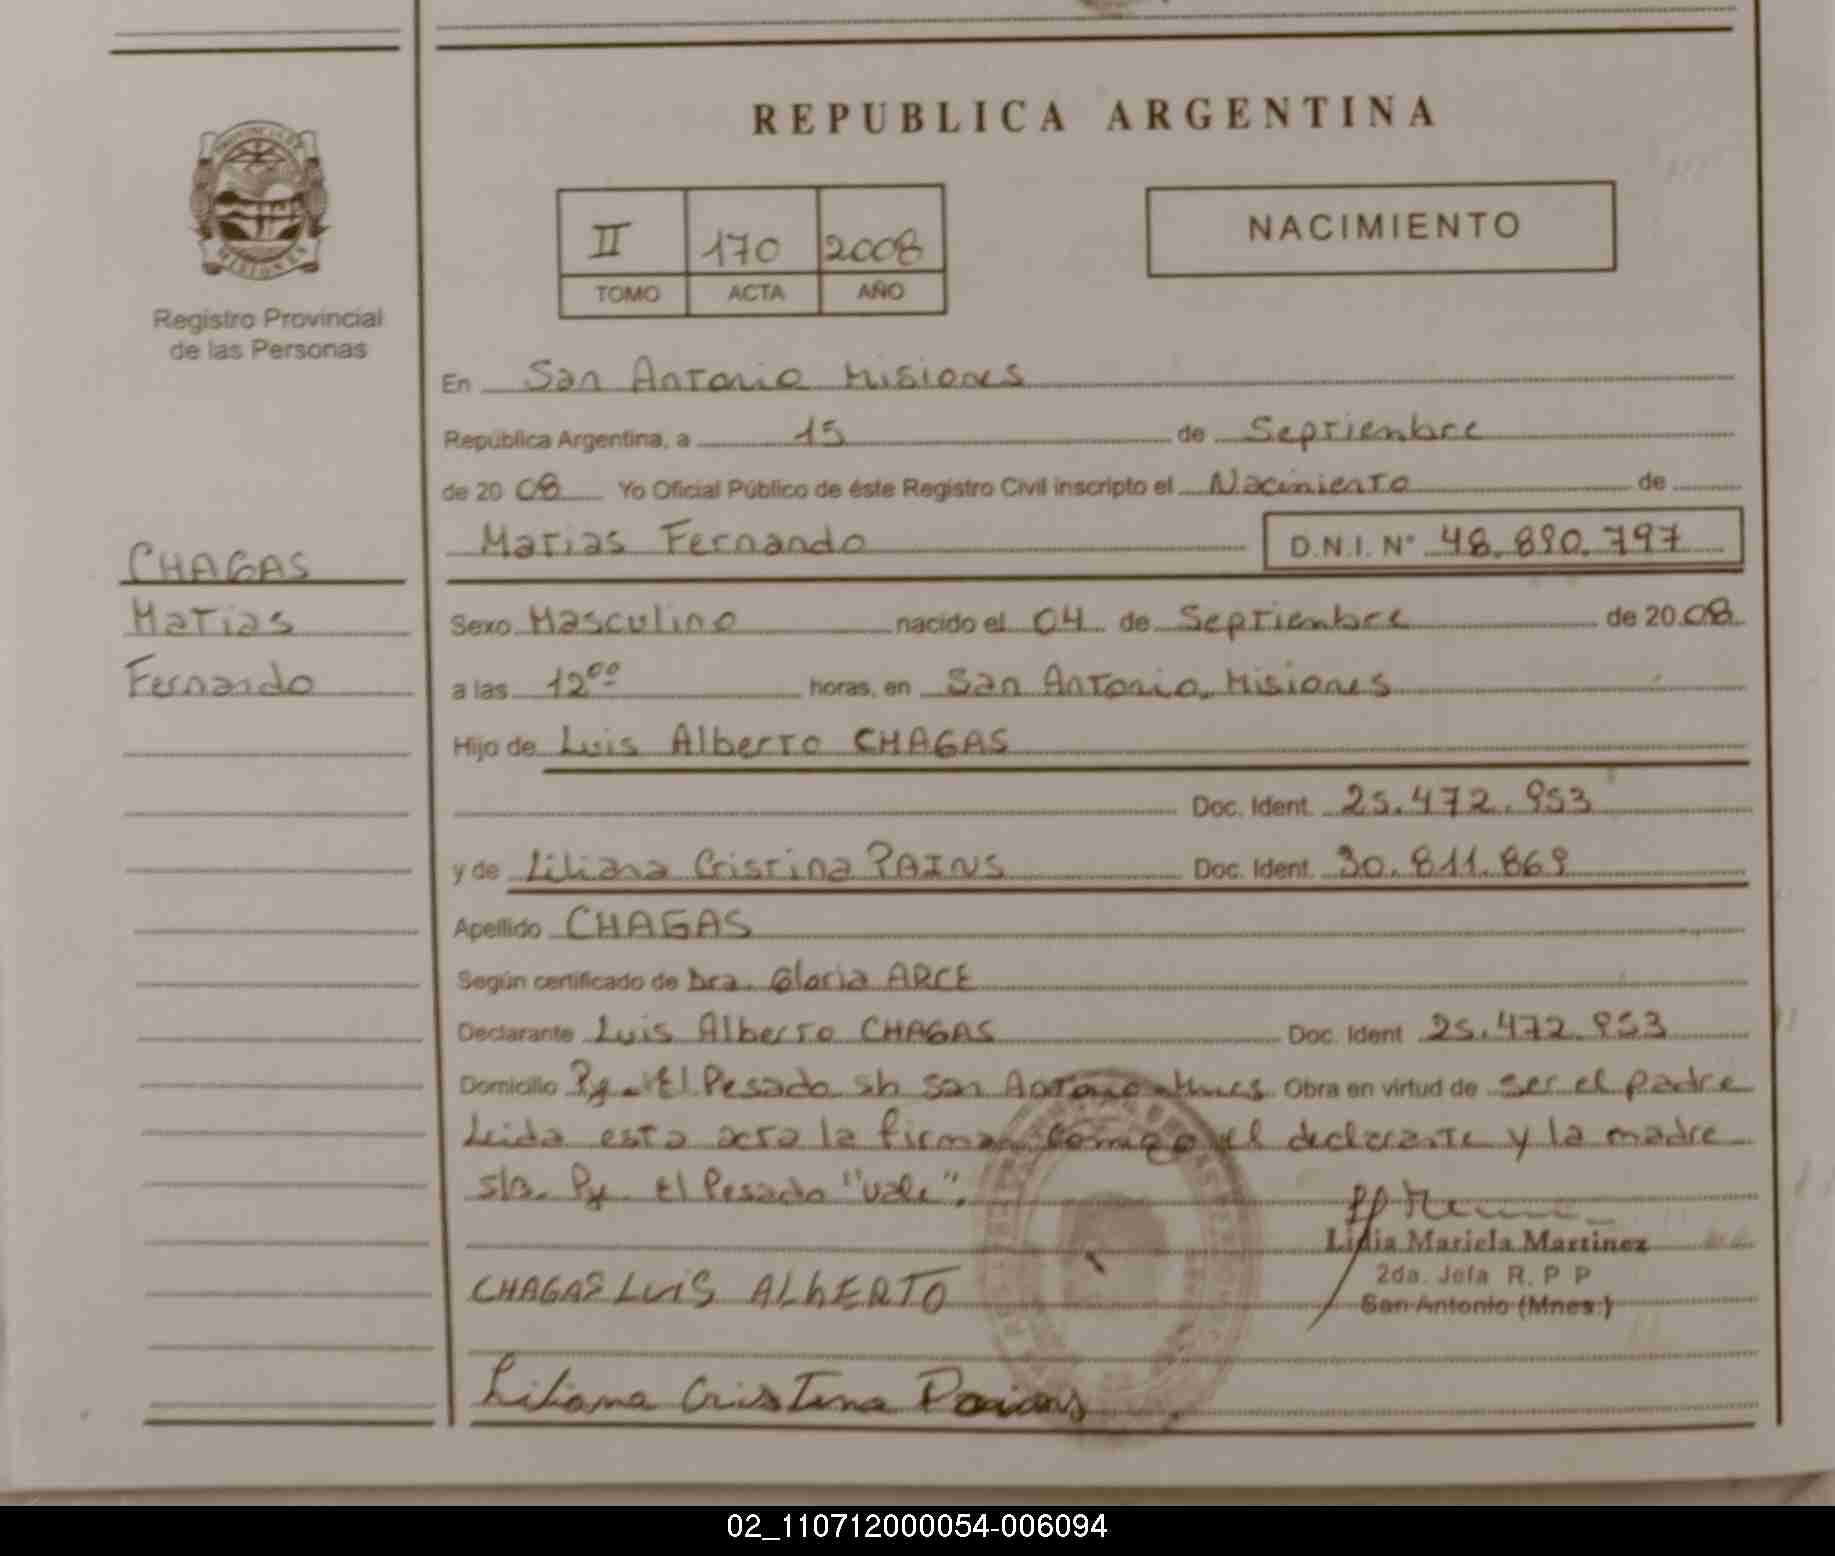 REPUBLICA ARGENTINA
II 170 2008
TOMO ACTA AÑO
NACIMIENTO
MISIONES
Registro Provincial
de las Personas
CHAGAS
Matias
Fernando
En San Antonio Misiones
República Argentina, a 15 de Septiembre
de 20 08 Yo Oficial Público de éste Registro Civil inscripto el Nacimiento de
Matias Fernando D.N.I. N° 48.890.797
Sexo Masculino nacido el 04 de Septiembre de 20 08
a las 12°° horas, en San Antonio, Misiones
Hijo de Luis Alberto CHAGAS
Doc. Ident. 25.472.953
y de Liliana Cristina PAINS Doc. Ident. 30.811.869
Apellido CHAGAS
Según certificado de Dra. Gloria ARCE
Declarante Luis Alberto CHAGAS Doc. Ident 25.472.953
Domicilio Pje. El Pesado sb San Antonio Mnes Obra en virtud de ser el padre
Leida esta acta la firman conmigo el declarante y la madre
s/B. Pje. El Pesado "vale".
Lidia Mariela Martinez
2da. Jefa R. P P
San Antonio (Mnes.)
CHAGAS LUiS ALbERTO
Liliana Cristina Paians
02_110712000054-006094